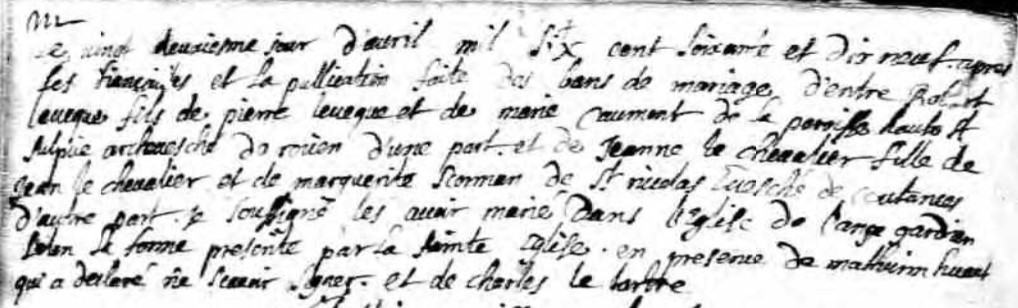 M
Le vingt deuxiesme jour d'avril mil six cent soixante et dix neuf. apres
les fiançailles et la publication faite des bans de mariage d'entre Robert
leveque fils de pierre leveque et de marie caumont de la paroisse haute St
sulpice archevesché de roüen d'une part. et de Jeanne le chevallier fille de
Jean le chevalier et de marguerite Scorman de St nicolas Evesché de coutances
d'autre part. je soussigné les avoir marié dans l'Eglise de l'ange gardien
selon la forme presente par la sainte Eglise. en presence de mathurin huaut
qui a declaré ne sçavoir signer. et de charles le tartre